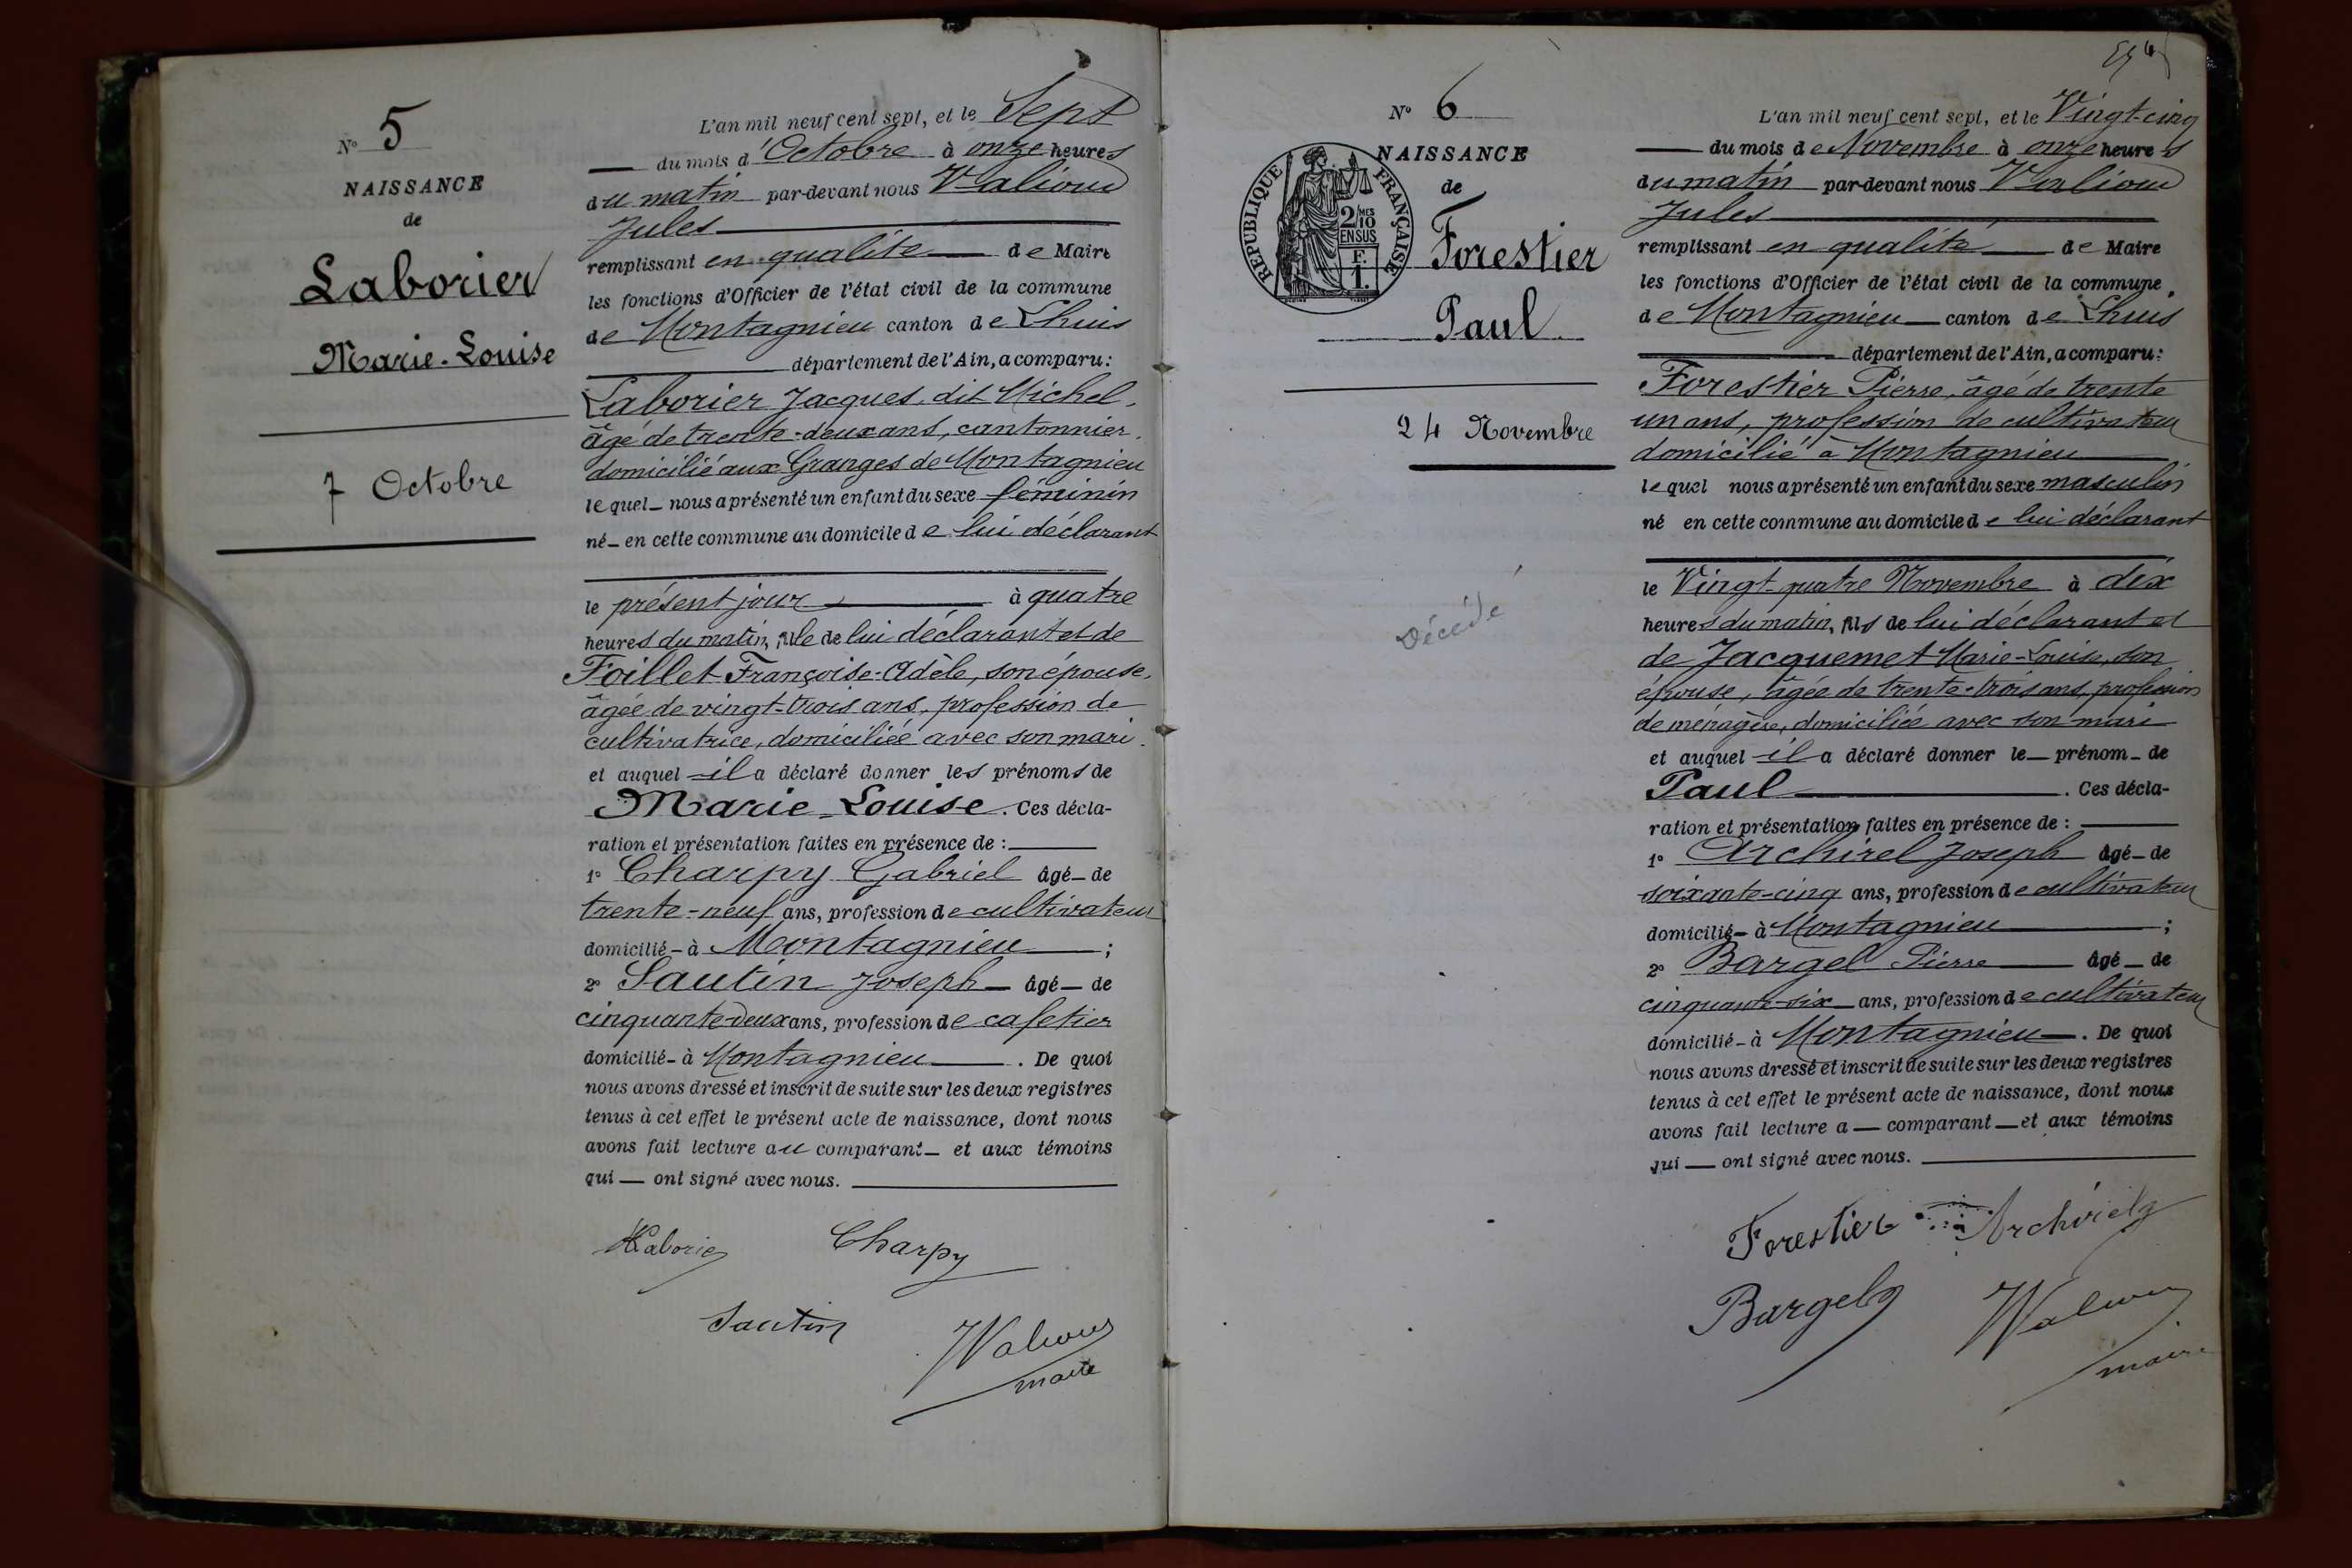 N° 5
NAISSANCE
de
Laborier
Marie-Louise
7 Octobre
L'an mil neuf cent sept, et le Sept
du mois d'Octobre à onze heures
du matin par-devant nous Valioud
Jules
remplissant en qualité de Maire
les fonctions d'Officier de l'état civil de la commune
de Montagnieu canton de Lhuis
département de l'Ain, a comparu :
Laborier Jacques, dit Michel,
âgé de trente-deux ans, cantonnier,
domicilié aux Granges de Montagnieu
lequel nous a présenté un enfant du sexe féminin
né en cette commune au domicile de lui déclarant
le présent jour à quatre
heures du matin, fille de lui déclarant et de
Foillet Françoise-Adèle, son épouse,
âgée de vingt-trois ans, profession de
cultivatrice, domiciliée avec son mari.
et auquel il a déclaré donner les prénoms de
Marie-Louise. Ces décla-
ration et présentation faites en présence de :
1° Charpy Gabriel âgé de
trente-neuf ans, profession de cultivateur
domicilié à Montagnieu ;
2° Sautin Joseph âgé de
cinquante-deux ans, profession de cafetier
domicilié à Montagnieu. De quoi
nous avons dressé et inscrit de suite sur les deux registres
tenus à cet effet le présent acte de naissance, dont nous
avons fait lecture au comparant et aux témoins
qui ont signé avec nous.
Laborier Charpy
Sautin JValioud
maire
N° 6
NAISSANCE
de
Forestier
Paul
24 Novembre
Décédé
REPUBLIQUE FRANÇAISE
2/10 MES
EN SUS
F.
1.
L'an mil neuf cent sept, et le Vingt-cinq
du mois de Novembre à onze heures
du matin par-devant nous Valioud
Jules
remplissant en qualité de Maire
les fonctions d'Officier de l'état civil de la commune
de Montagnieu canton de Lhuis
département de l'Ain, a comparu :
Forestier Pierre, âgé de trente
un ans, profession de cultivateur
domicilié à Montagnieu
lequel nous a présenté un enfant du sexe masculin
né en cette commune au domicile de lui déclarant
le Vingt-quatre Novembre à dix
heures du matin, fils de lui déclarant et
de Jacquemet Marie-Louise, son
épouse, âgée de trente-trois ans, profession
de ménagère, domiciliée avec son mari
et auquel il a déclaré donner le prénom de
Paul. Ces décla-
ration et présentation faites en présence de :
1° Archirel Joseph âgé de
soixante-cinq ans, profession de cultivateur
domicilié à Montagnieu ;
2° Bargel Pierre âgé de
cinquante-six ans, profession de cultivateur
domicilié à Montagnieu. De quoi
nous avons dressé et inscrit de suite sur les deux registres
tenus à cet effet le présent acte de naissance, dont nous
avons fait lecture a comparant et aux témoins
qui ont signé avec nous.
Forestier Archirel
Bargel JValioud
maire